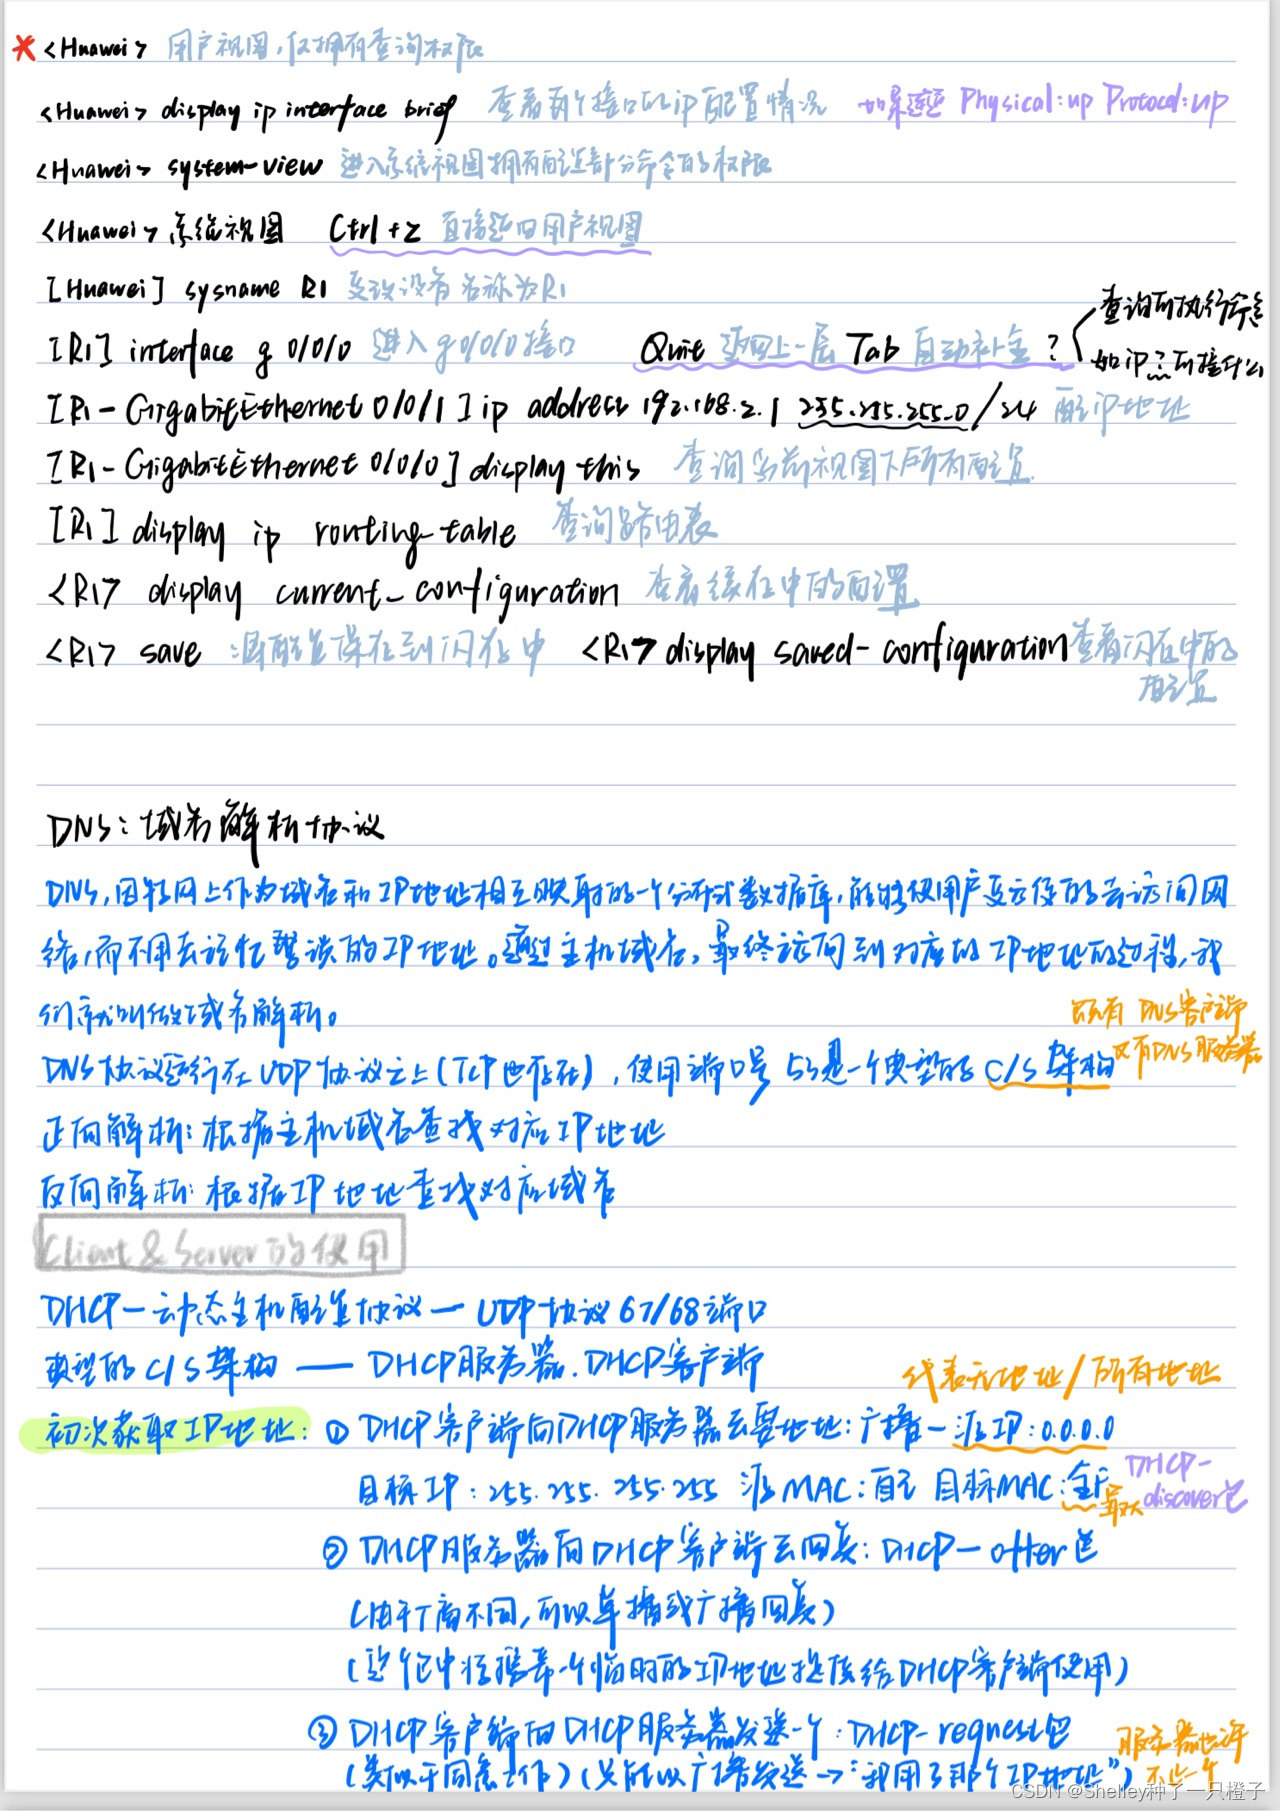 <Huawei> 用户视图,仅拥有查询权限
<Huawei> display ip interface brief 查看每个接口的ip配置情况 如果 Physical:up Protocol:up
<Huawei> system-view 进入系统视图拥有配置部分命令的权限
<Huawei> 系统视图 Ctrl+z 直接返回用户视图
[Huawei] sysname R1 更改设备名称为R1
[R1] interface g 0/0/0 进入g0/0/0接口 Quit 返回上一层 Tab 自动补全 ?
查询可执行命令
如ip ? 可接什么
[R1-GigabitEthernet 0/0/1] ip address 192.168.2.1 255.255.255.0/24 配ip地址
[R1-GigabitEthernet 0/0/0] display this 查询当前视图下所有配置
[R1] display ip routing-table 查询路由表
<R1> display current-configuration 查看缓存中的配置
<R1> save :将配置保存到闪存中 <R1> display saved-configuration 查看闪存中的
配置
DNS:域名解析协议
DNS,因特网上作为域名和IP地址相互映射的一个分布式数据库,能够使用户更方便的去访问网
络,而不用去记忆繁琐的IP地址。通过主机域名,最终访问到对应的IP地址的过程,我
们就叫做域名解析。
既有DNS客户端
又有DNS服务器
DNS协议运行在UDP协议之上(TCP也存在),使用端口号53是一个典型的C/S架构
正向解析:根据主机域名查找对应IP地址
反向解析:根据IP地址查找对应域名
Client & Server的使用
DHCP—动态主机配置协议—UDP协议67/68端口
典型的C/S架构 —— DHCP服务器.DHCP客户端
代表无地址/所有地址
初次获取IP地址: ① DHCP客户端向DHCP服务器去要地址:广播—源IP:0.0.0.0
目标IP:255.255.255.255 源MAC:自己 目标MAC:全F
DHCP-
discover包
② DHCP服务器向DHCP客户端去回复:DHCP-offer包
(由于厂商不同,可以单播或广播回复)
(这个包中将携带一个临时的IP地址提供给DHCP客户端使用)
③ DHCP客户端向DHCP服务器发送一个:DHCP-request包
服务器也许
不止一个
(类似于同意工作)(只能以广播发送→“我用了那个IP地址”)
CSDN @Shelley种了一只橙子